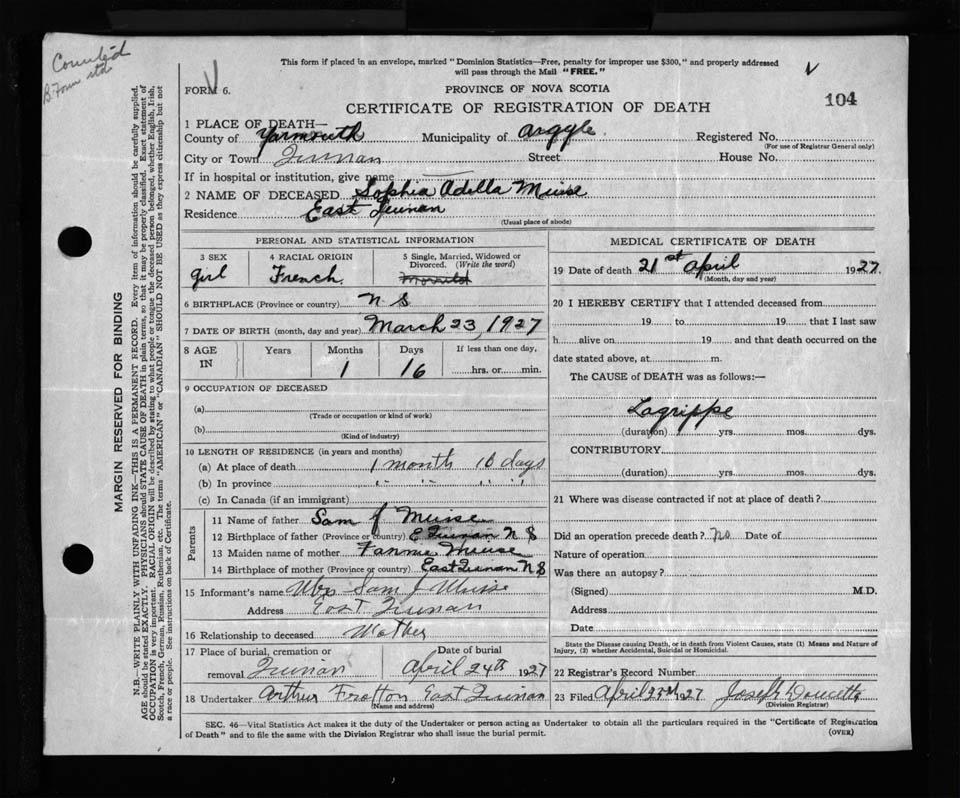 Counted
This form if placed in an envelope, marked "Dominion Statistics—Free, penalty for improper use $300," and properly addressed
will pass through the Mail "FREE."
FORM 6.
PROVINCE OF NOVA SCOTIA
104
CERTIFICATE OF REGISTRATION OF DEATH
1 PLACE OF DEATH—
County of Yarmouth Municipality of Argyle Registered No.
(For use of Registrar General only)
City or Town Street House No.
If in hospital or institution, give name
2 NAME OF DECEASED Sophia Adella Muise
Residence East
(Usual place of abode)
PERSONAL AND STATISTICAL INFORMATION
3 SEX 4 RACIAL ORIGIN 5 Single, Married, Widowed or
Divorced. (Write the word)
girl French
6 BIRTHPLACE (Province or country) N S
7 DATE OF BIRTH (month, day and year) March 23, 1927
8 AGE IN Years Months Days If less than one day,
1 16 hrs. or min.
9 OCCUPATION OF DECEASED
(a)
(Trade or occupation or kind of work)
(b)
(Kind of industry)
10 LENGTH OF RESIDENCE (in years and months)
(a) At place of death 1 month 16 days
(b) In province " " " "
(c) In Canada (if an immigrant)
Parents
11 Name of father Sam J Muise
12 Birthplace of father (Province or country) E N S
13 Maiden name of mother Fannie Muise
14 Birthplace of mother (Province or country) East N S
15 Informant's name Mrs Sam J Muise
Address East
16 Relationship to deceased Mother
17 Place of burial, cremation or Date of burial
removal April 24th 1927
18 Undertaker Arthur East
(Name and address)
MEDICAL CERTIFICATE OF DEATH
19 Date of death 21st April 1927
(Month, day and year)
20 I HEREBY CERTIFY that I attended deceased from
19 to 19 that I last saw
h alive on 19 and that death occurred on the
date stated above, at m.
The CAUSE of DEATH was as follows:—
Lagrippe
(duration) yrs. mos. dys.
CONTRIBUTORY
(duration) yrs. mos. dys.
21 Where was disease contracted if not at place of death?
Did an operation precede death? No Date of
Nature of operation
Was there an autopsy?
(Signed) M.D.
Address
Date
State the Disease causing Death, or in death from Violent Causes, state (1) Means and Nature of
Injury, (2) whether Accidental, Suicidal or Homicidal.
22 Registrar's Record Number
23 Filed April 23rd 1927 Joseph Doucette
(Division Registrar)
SEC. 46—Vital Statistics Act makes it the duty of the Undertaker or person acting as Undertaker to obtain all the particulars required in the "Certificate of Registration
of Death" and to file the same with the Division Registrar who shall issue the burial permit.
(OVER)
MARGIN RESERVED FOR BINDING
N.B.—WRITE PLAINLY WITH UNFADING INK—THIS IS A PERMANENT RECORD. Every item of information should be carefully supplied.
AGE should be stated EXACTLY. PHYSICIANS should STATE CAUSE OF DEATH in plain terms, so that it may be properly classified. Exact statement of
OCCUPATION is very important. RACIAL ORIGIN will be described by stating to what people or tongue the deceased person belonged, whether English, Irish,
Scotch, French, German, Russian, Ruthenian, etc. The terms "AMERICAN" or "CANADIAN" SHOULD NOT BE USED as they express citizenship but not
a race or people. See instructions on back of Certificate.